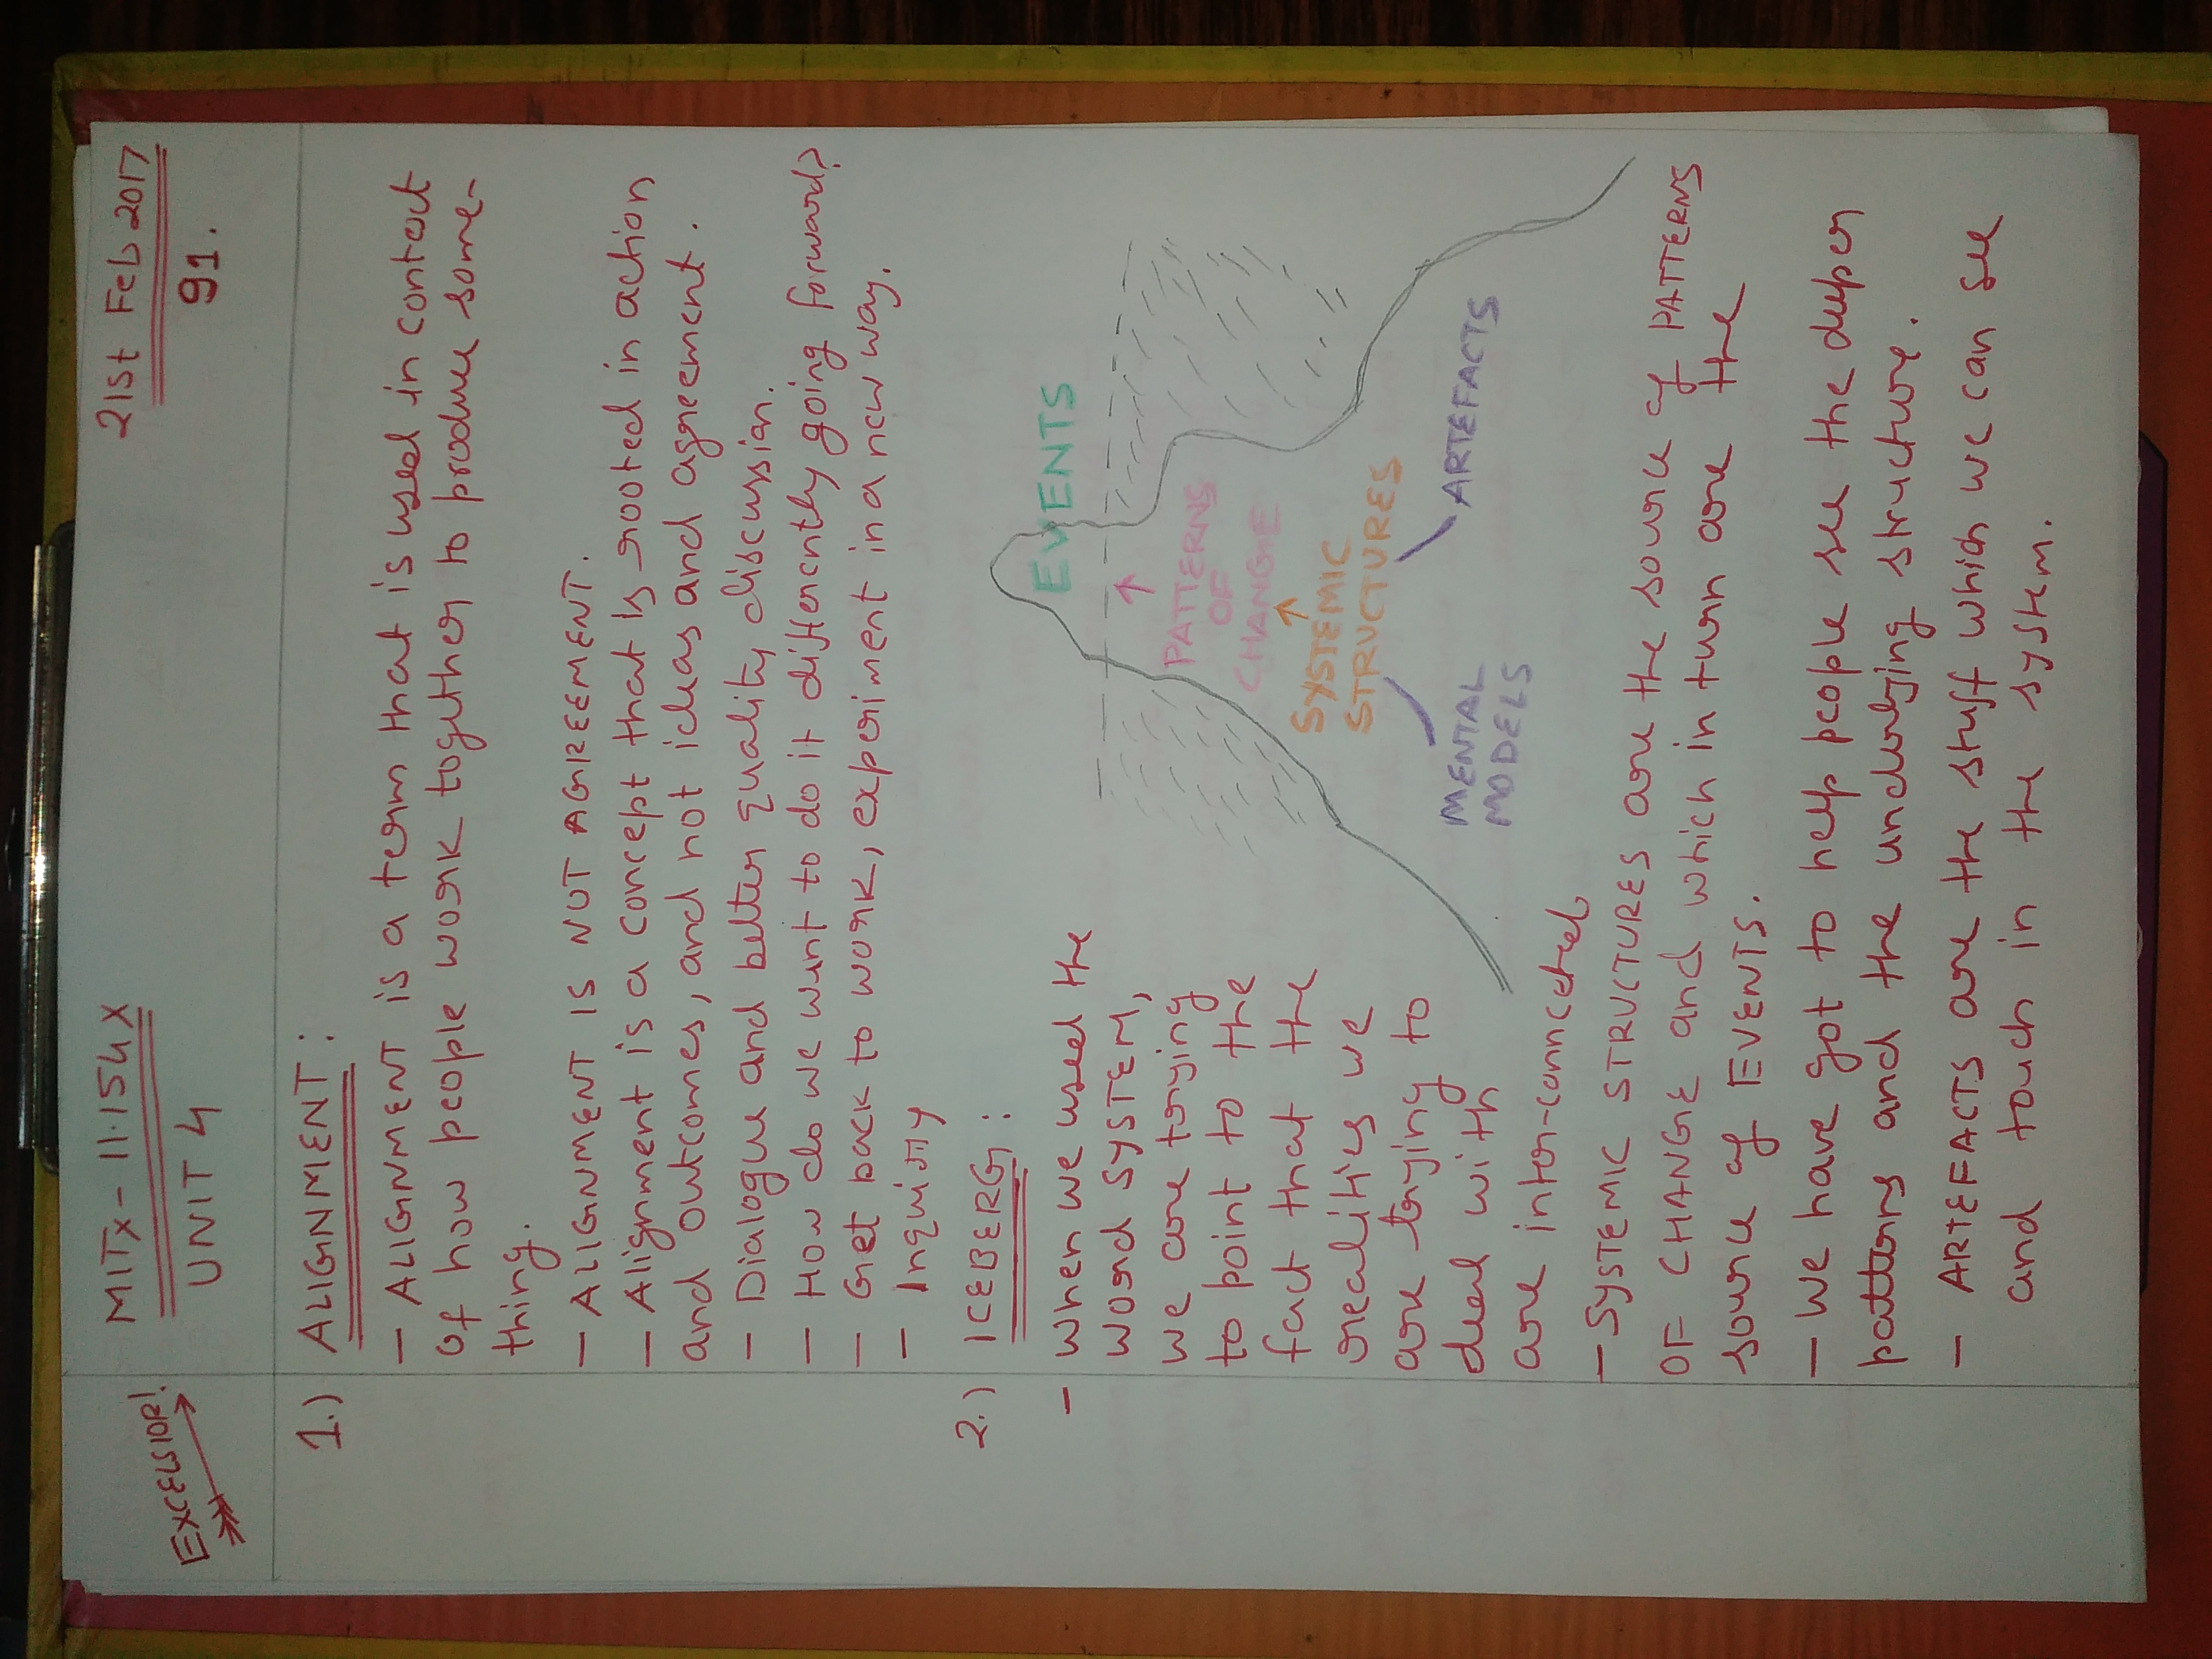 EXCELSIOR!
MITx - 11.154x
UNIT 4
21st Feb 2017
91.
1.) ALIGNMENT:
- ALIGNMENT is a term that is used in context
of how people work together to produce some-
thing.
- ALIGNMENT IS NOT AGREEMENT.
- Alignment is a concept that is rooted in action
and outcomes, and not ideas and agreement.
- Dialogue and better quality discussion.
- How do we want to do it differently going forward?
- Get back to work, experiment in a new way.
- Inquiry
2.) ICEBERG:
- When we used the
word SYSTEM,
we are trying
to point to the
fact that the
realities we
are trying to
deal with
are inter-connected
EVENTS
PATTERNS
OF
CHANGE
SYSTEMIC
STRUCTURES
MENTAL
MODELS
ARTEFACTS
- SYSTEMIC STRUCTURES are the source of PATTERNS
OF CHANGE and which in turn are the
source of EVENTS.
- We have got to help people see the deeper
patterns and the underlying structure.
- ARTEFACTS are the stuff which we can see
and touch in the system.